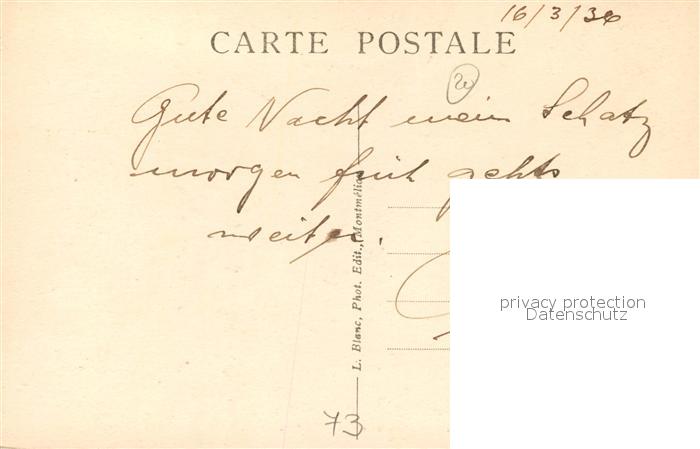 16/3/36
CARTE POSTALE
Gute Nacht mein Schatz
morgen früh gehts
weiter.
L. Blanc, Phot. Edit., Montmélian
73
privacy protection
Datenschutz